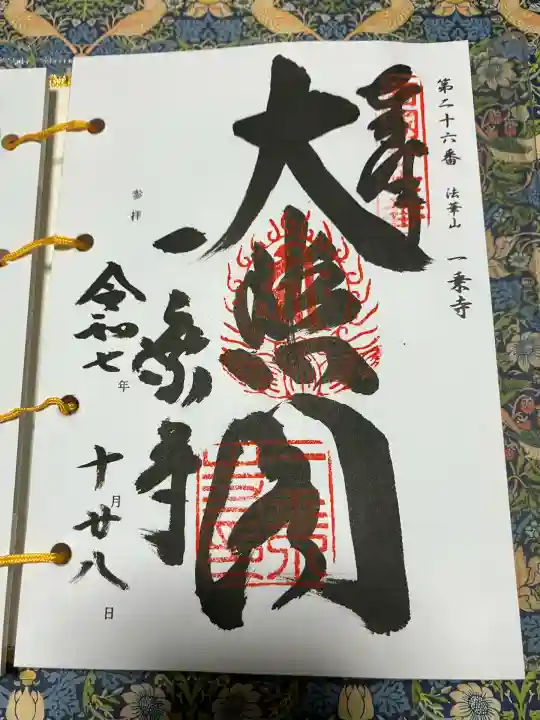 第二十六番 法華山 一乗寺
奉拝
大悲閣
一乗寺
参拝
令和七年 十月廿八日